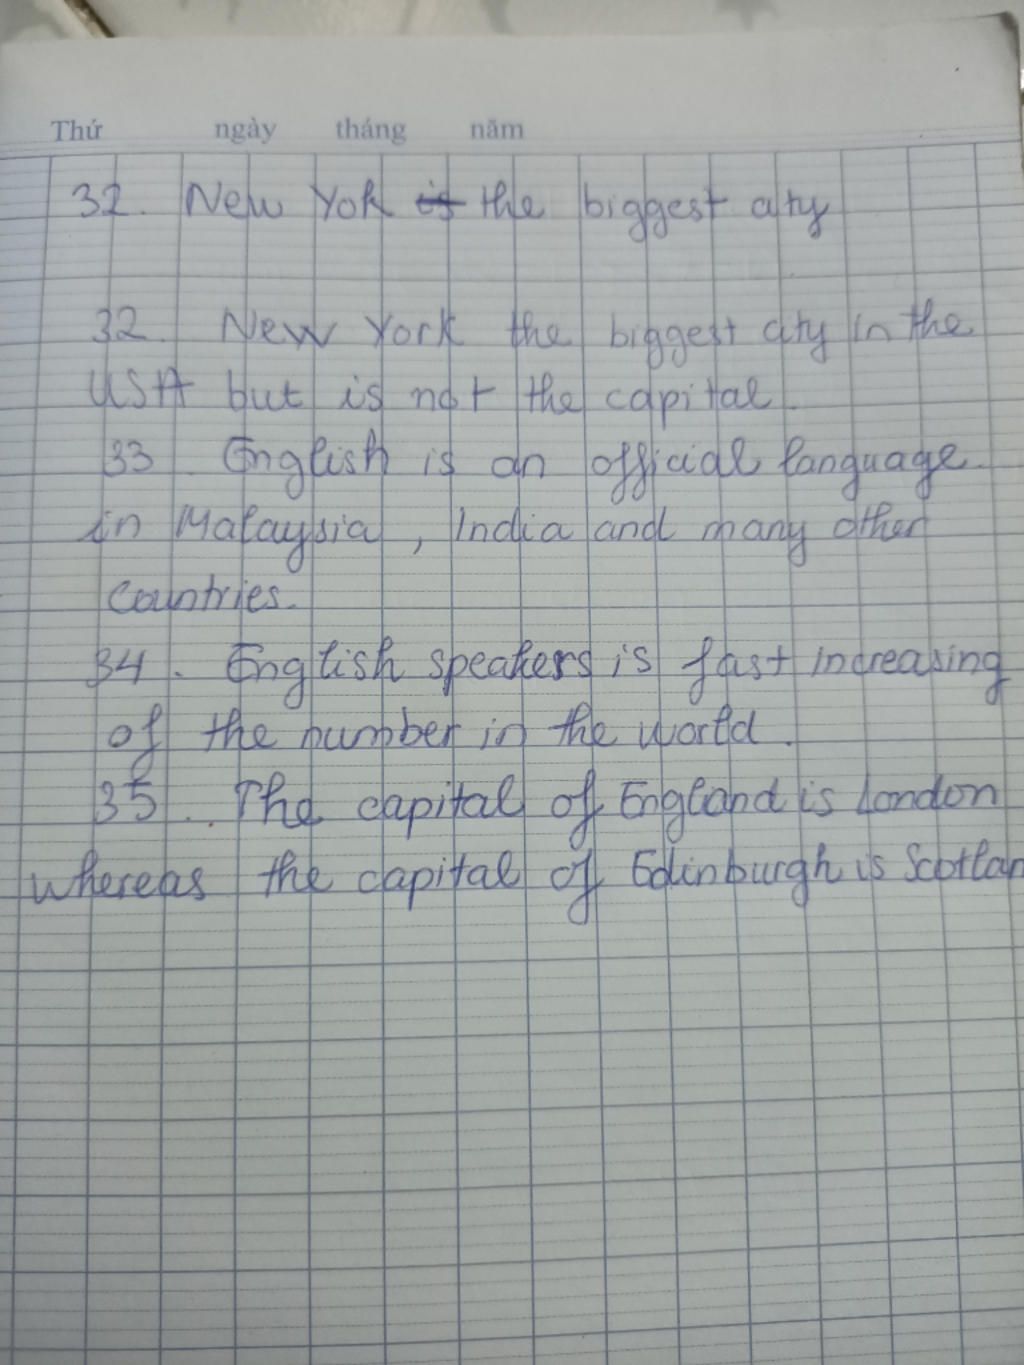 Thứ ngày tháng năm
32. New Yok is the biggest city
32. New York the biggest city in the
USA but is not the capital.
33. English is an official language
in Malaysia, India and many other
countries.
34. English speakers is fast increasing
of the number in the world.
35. The capital of England is London
whereas the capital of Edinburgh is Scotlan